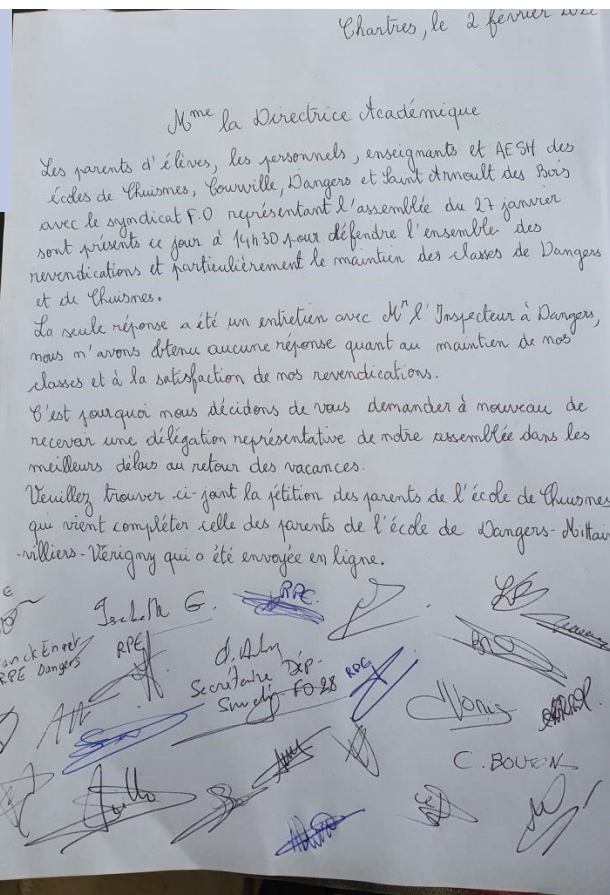 Chartres, le 2 février
Mme la Directrice Académique
Les parents d'élèves, les personnels, enseignants et AESH des
écoles de Chuisnes, Courville, Dangers et Saint Arnoult des Bois
avec le syndicat F.O représentant l'assemblée du 27 janvier
sont présents ce jour à 14h30 pour défendre l'ensemble des
revendications et particulièrement le maintien des classes de Dangers
et de Chuisnes.
La seule réponse a été un entretien avec Mr l'Inspecteur à Dangers,
nous n'avons obtenu aucune réponse quant au maintien de nos
classes et à la satisfaction de nos revendications.
C'est pourquoi nous décidons de vous demander à nouveau de
recevoir une délégation représentative de notre assemblée dans les
meilleurs délais au retour des vacances.
Veuillez trouver ci-joint la pétition des parents de l'école de Chuisnes
qui vient compléter celle des parents de l'école de Dangers-Mittain
-villiers-Vérigny qui a été envoyée en ligne.
G. RPE
RPE Dangers RPE
Secrétaire Dép.
FO 28 RPE
C. BOUTON